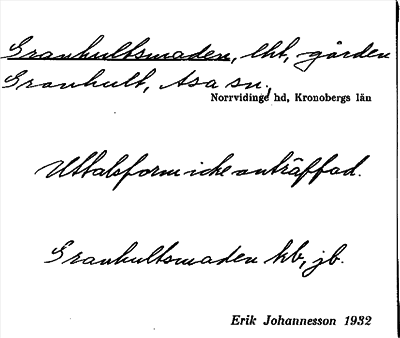 Granhultsmaden, lht, gården
Granhult, Asa sn,
Norrvidinge hd, Kronobergs län
Uttalsform icke anträffad.
Granhultsmaden hb, jb.
Erik Johannesson 1932